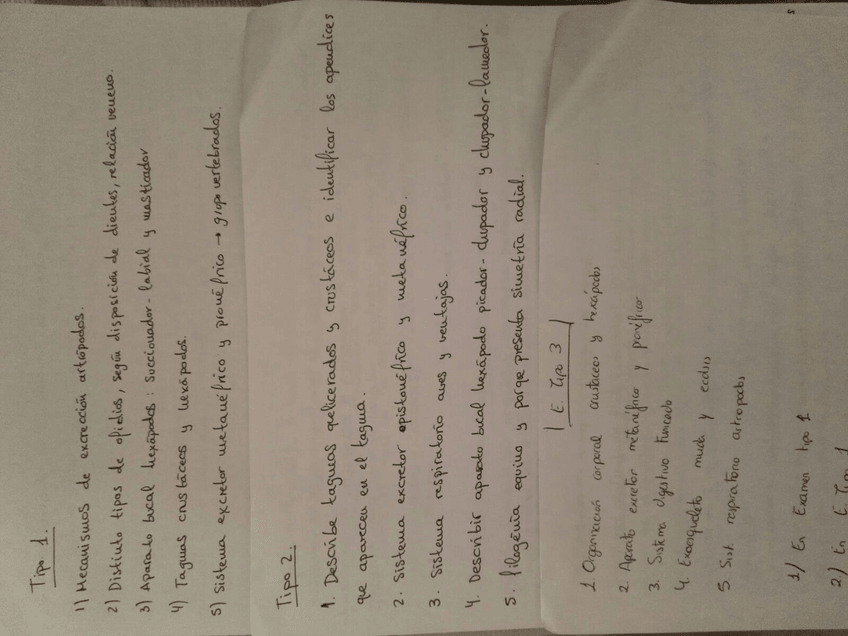 Tipo 1.
1) Mecanismos de excreción artrópodos.
2) Distinto tipos de ofidios, según disposición de dientes, relación veneno.
3) Aparato bucal hexápodos: succionador-labial y masticador
4) Tagmas crustáceos y hexápodos.
5) Sistema excretor metanéfrico y pronéfrico → grupo vertebrados.
Tipo 2.
1. Describe tagmas quelicerados y crustáceos e identificar los apendices
que aparecen en el tagma.
2. Sistema excretor opistonéfrico y metanéfrico.
3. Sistema respiratorio aves y ventajas.
4. Describir aparato bucal hexápodo picador-chupador y chupador-lamedor.
5. Filogénia equino y porqe presenta simetría radial.
E. Tipo 3
1. Organización corporal crustaceos y hexápodos
2. Aparato excretor metanéfrico y pronéfrico
3. Sistema digestivo
4. Exoesqueleto muda y ecdisis
5. Sist. respiratorio artropodos
1) En Examen tipo 1
2) En E. Tipo 1